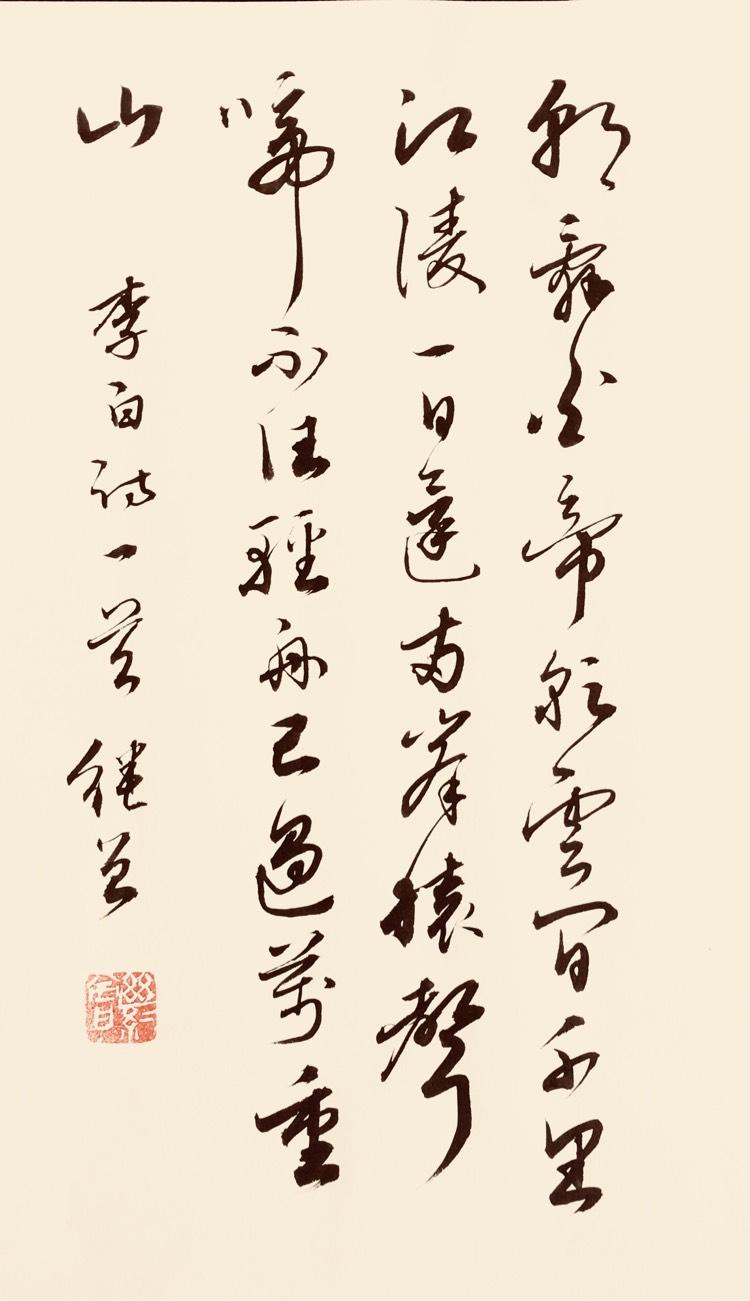 朝辭白帝彩雲間千里
江陵一日還兩岸猿聲
啼不住輕舟已過萬重
山 李白詩一首 繼